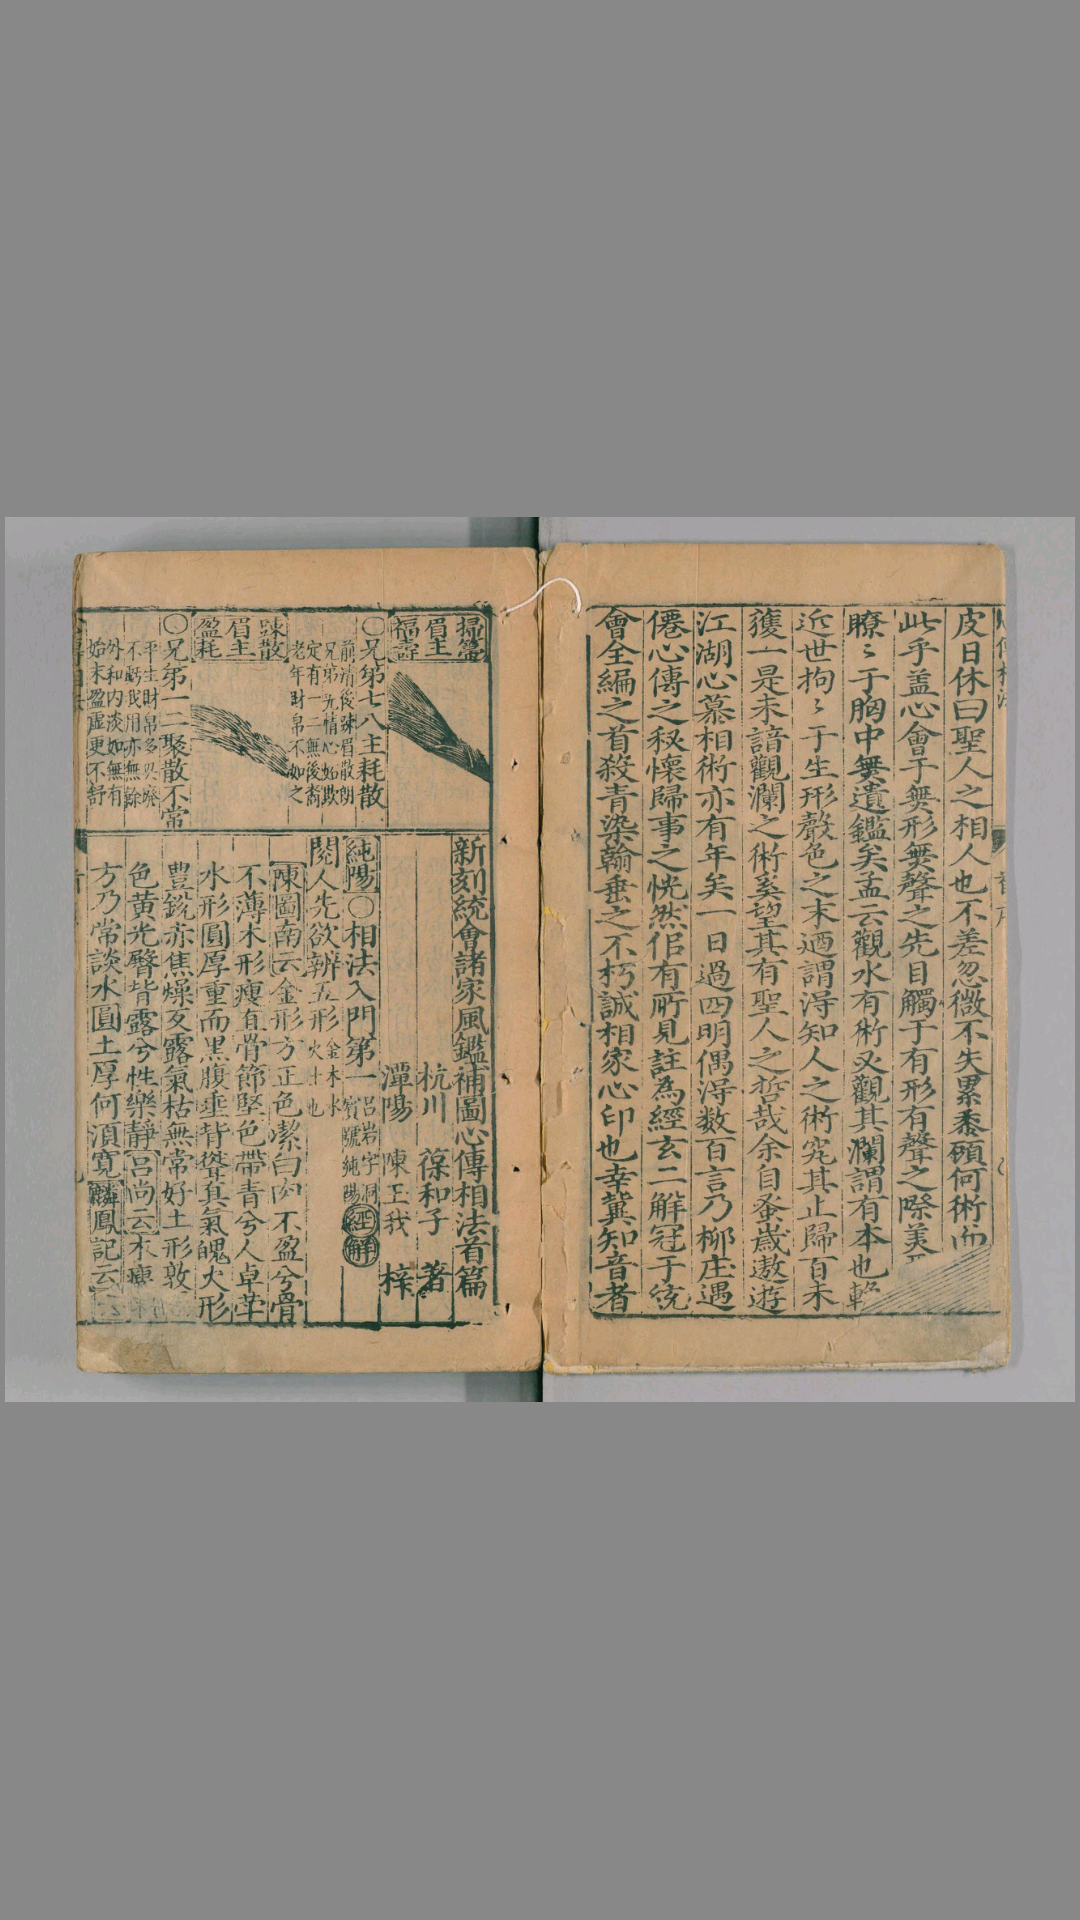 皮日休曰聖人之相人也不差忽微不失累黍顧何術而
此乎盖心會于無形無聲之先目觸于有形有聲之際美
瞭〻于胸中無遺鑑矣孟云觀水有術必觀其瀾謂有本也
近世拘〻于生形聲色之末迺謂淂知人之術究其止歸百未
獲一是未諳觀瀾之術奚望其有聖人之哲哉余自蚤歲遨遊
江湖心慕相術亦有年矣一日過四明偶淂数百言乃柳庄遇
僊心傳之秘懷歸事之恍然佀有所見註為經玄二解冠于統
會全編之首殺青染翰垂之不朽誠相家心印也幸冀知音者
掃箒
眉主
福壽
〇兄第七八主耗散
前清後踈眉散朗
兄第旡情心始欺
定有一二無後裔
老年財帛不如之
踈散
眉主
盈耗
〇兄第一二聚散不常
平生財帛多興廢
不虧我用亦無餘
外和内淡如無有
始末盈虛更不舒
新刻統會諸家風鑑補圖心傳相法首篇
杭川 葆和子 著
潭陽 陳玉我 梓
純陽〇相法入門第一吕岩字洞
賓號純陽經解
閱人先欲辨五形金木水
火土也
陳圖南云金形方正色潔白肉不盈兮骨
不薄木形瘦直骨節堅色帶青兮人卓犖
水形圓厚重而黑腹垂背聳真氣魄火形
豐銳赤焦燥反露氣枯無常好土形敦
色黄光臀背露兮性樂靜吕尚云木瘦
方乃常談水圓土厚何須寬麟鳳記云